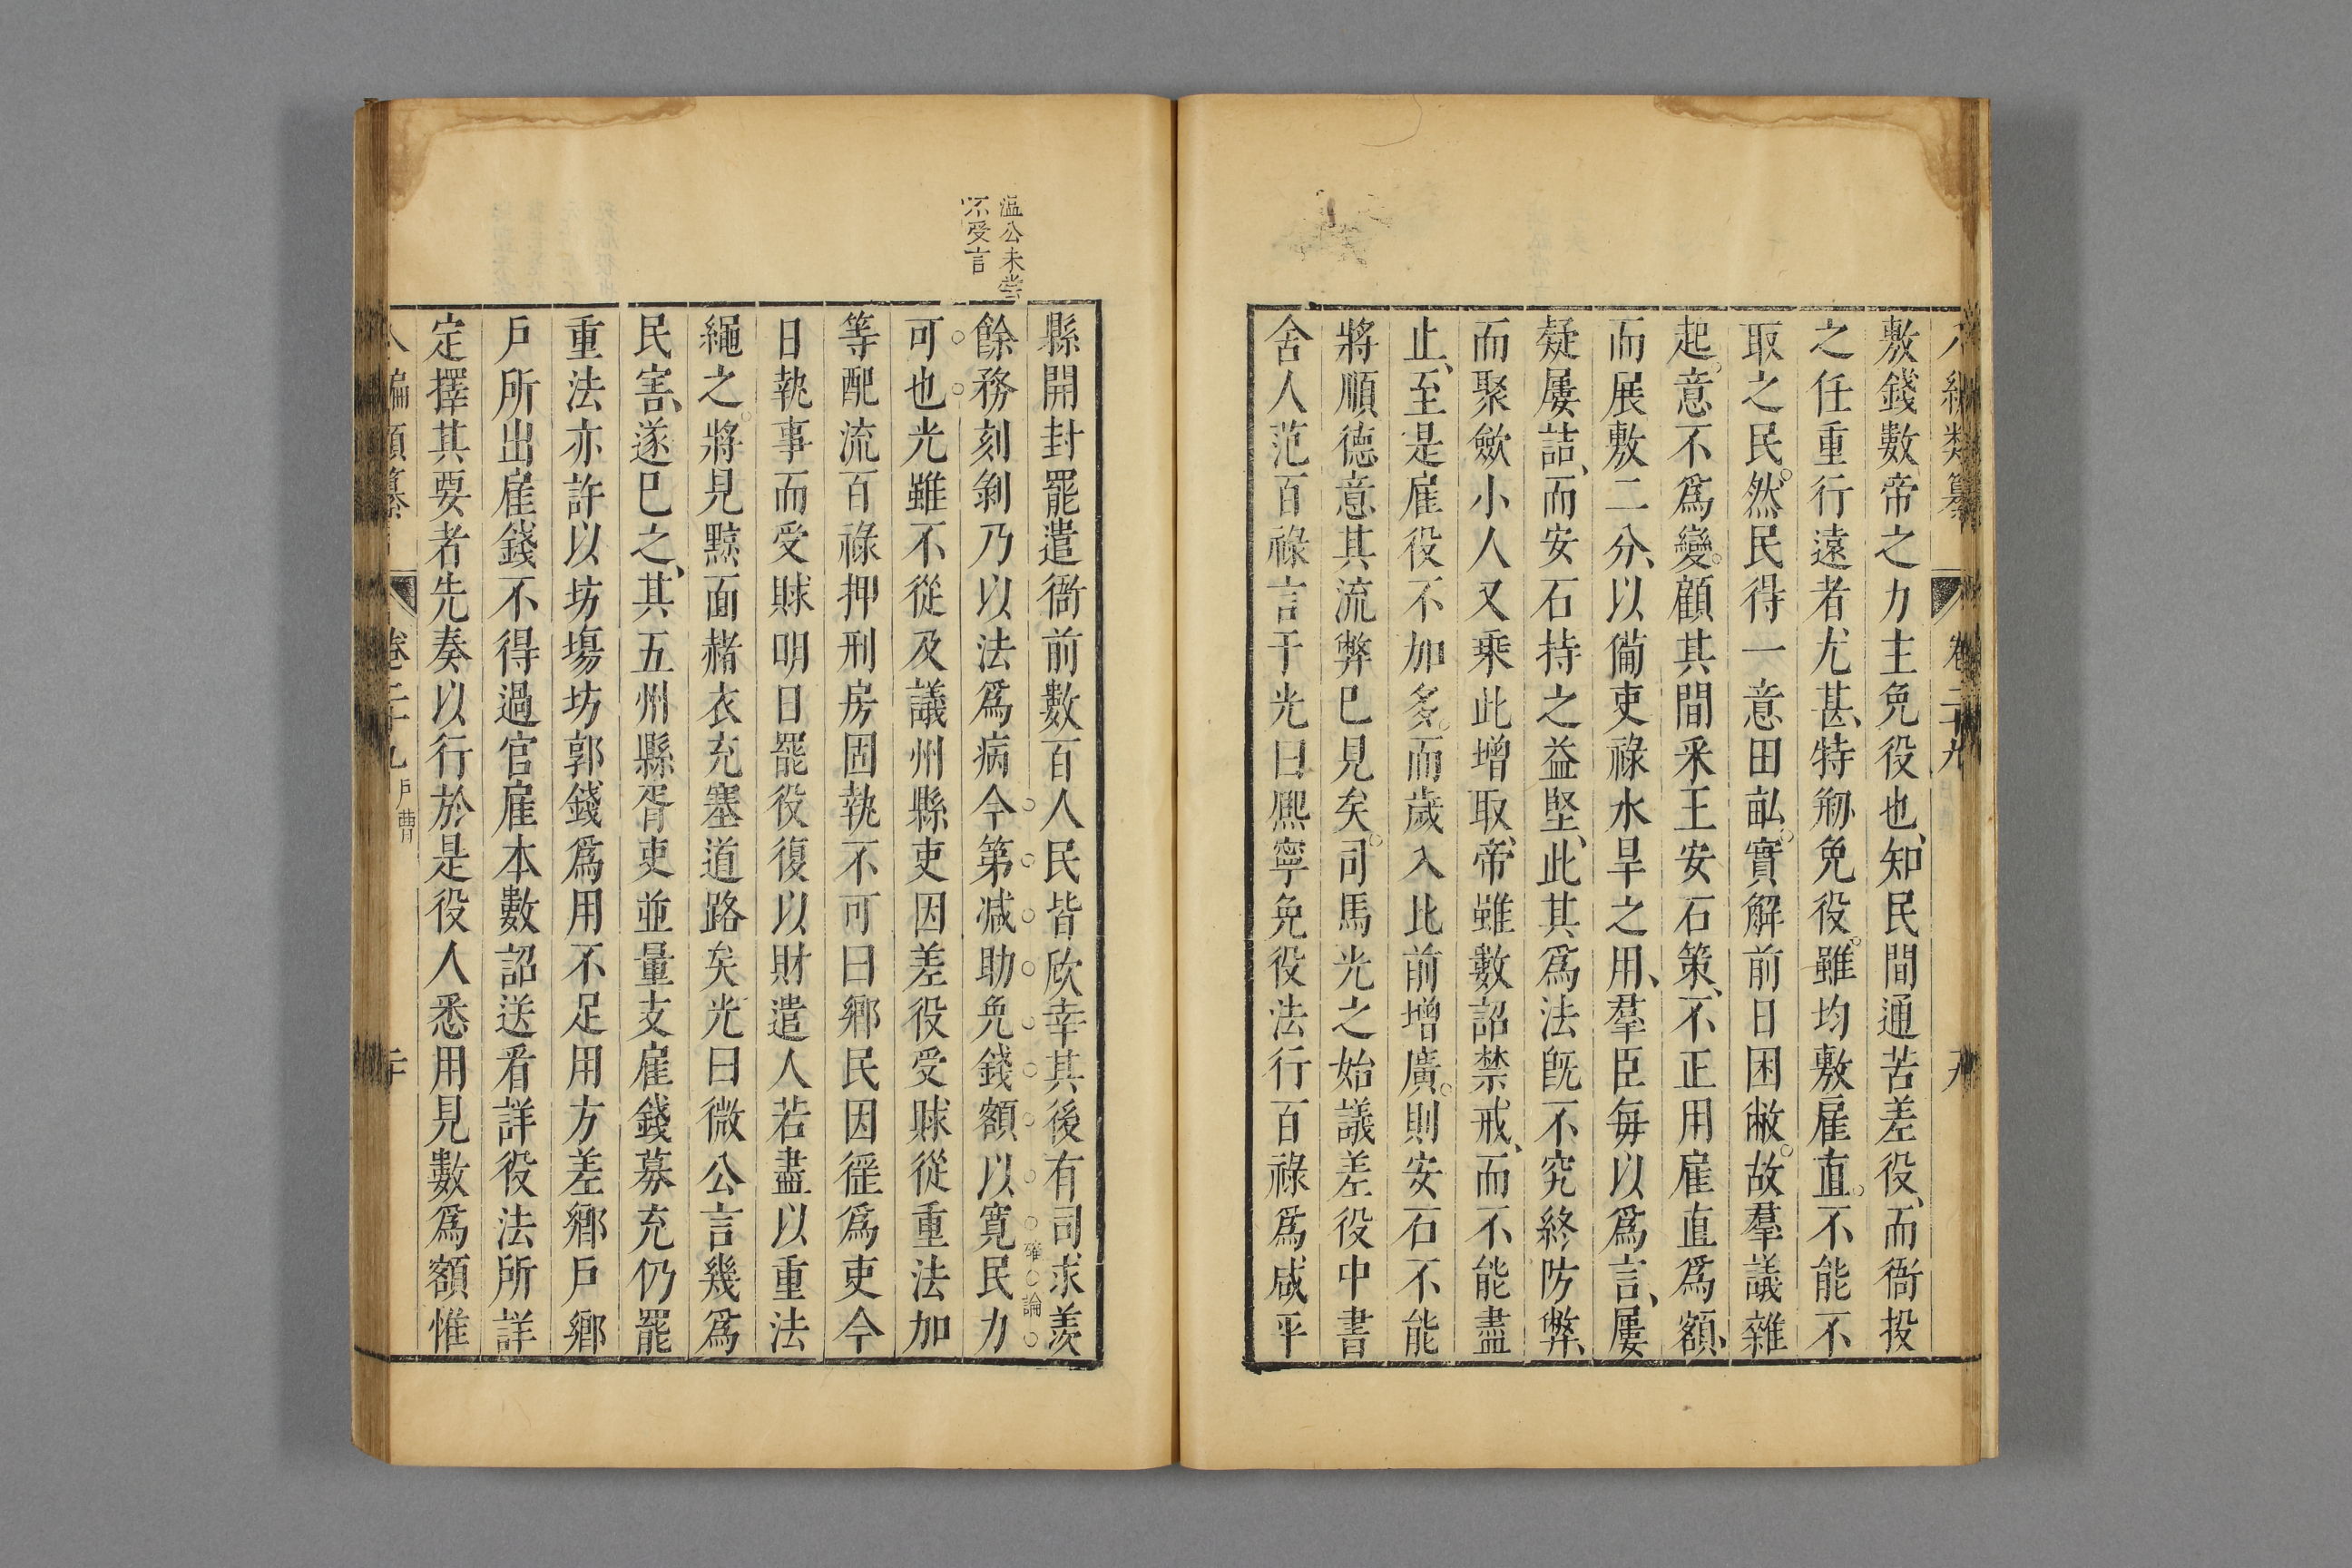 八編類纂 卷二十九 九
敷錢數帝之力主免役也知民間通苦差役而衙投
之任重行遠者尤甚特剏免役雖均敷雇直不能不
取之民然民得一意田畝實解前日困敝故羣議雜
起意不爲變顧其間采王安石策不正用雇直爲額
而展敷二分以備吏祿水旱之用羣臣每以爲言屢
疑屢詰而安石持之益堅此其爲法旣不究終防弊
而聚斂小人又乘此增取帝雖數詔禁戒而不能盡
止至是雇役不加多而歲入比前增廣則安石不能
將順德意其流弊已見矣司馬光之始議差役中書
舍人范百祿言于光曰熈寧免役法行百祿爲咸平
溫公未嘗
不受言
縣開封罷遣衙前數百人民皆欣幸其後有司求羨
餘務刻剝乃以法爲病今第減助免錢額以寬民力
確論
可也光雖不從及議州縣吏因差役受賕從重法加
等配流百祿押刑房固執不可曰鄉民因徭爲吏今
日執事而受賕明日罷役復以財遣人若盡以重法
繩之將見黥面赭衣充塞道路矣光曰微公言幾爲
民害遂已之其五州縣胥吏並量支雇錢募充仍罷
重法亦許以坊塲坊郭錢爲用不足用方差鄉戶鄉
戶所出雇錢不得過官雇本數詔送看詳役法所詳
定擇其要者先奏以行於是役人悉用見數爲額惟
八編類纂 卷二十九 戶曹 二十